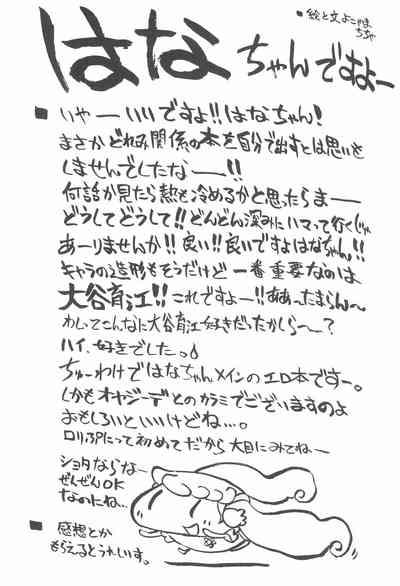 ■絵と文 よこやま
ちちゃ
はなちゃんですよー
■いやーいいですよ!!はなちゃん!
まさかどれみ関係の本を自分で出すとは思いも
しませんでしたなー!!
何話か見たら熱も冷めるかと思ったらまー
どうしてどうして!!どんどん深みにハマって行くじゃ
あーりませんか!!良い!!良いですよはなちゃん!!
キャラの造形もそうだけど一番重要なのは
大谷育江!!これですよー!!ああ…たまらん〜
わしってこんなに大谷育江好きだったかしら〜?
ハイ、好きでした。
ちゅーわけではなちゃんメインのエロ本ですー。
しかもオヤジーデとのカラミでございますのよ
おもしろいといいけどね…。
ロリぷにって初めてだから大目にみてねー
ショタならなー
ぜんぜんOK
なのにね…
■感想とか
もらえるとうれしいす。